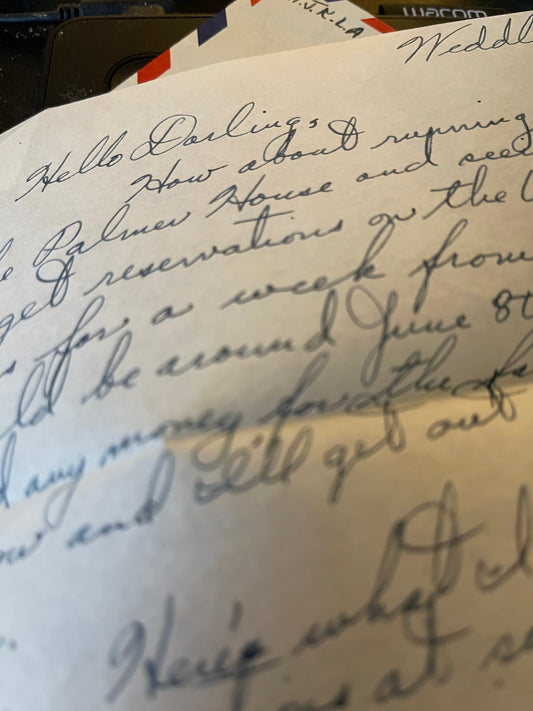 wacom
Hello Darlings
How about running
Palmer House and see
get reservations on the
for a week from
be around June 8t
any money for the
and I'll get out
Here's what I
at